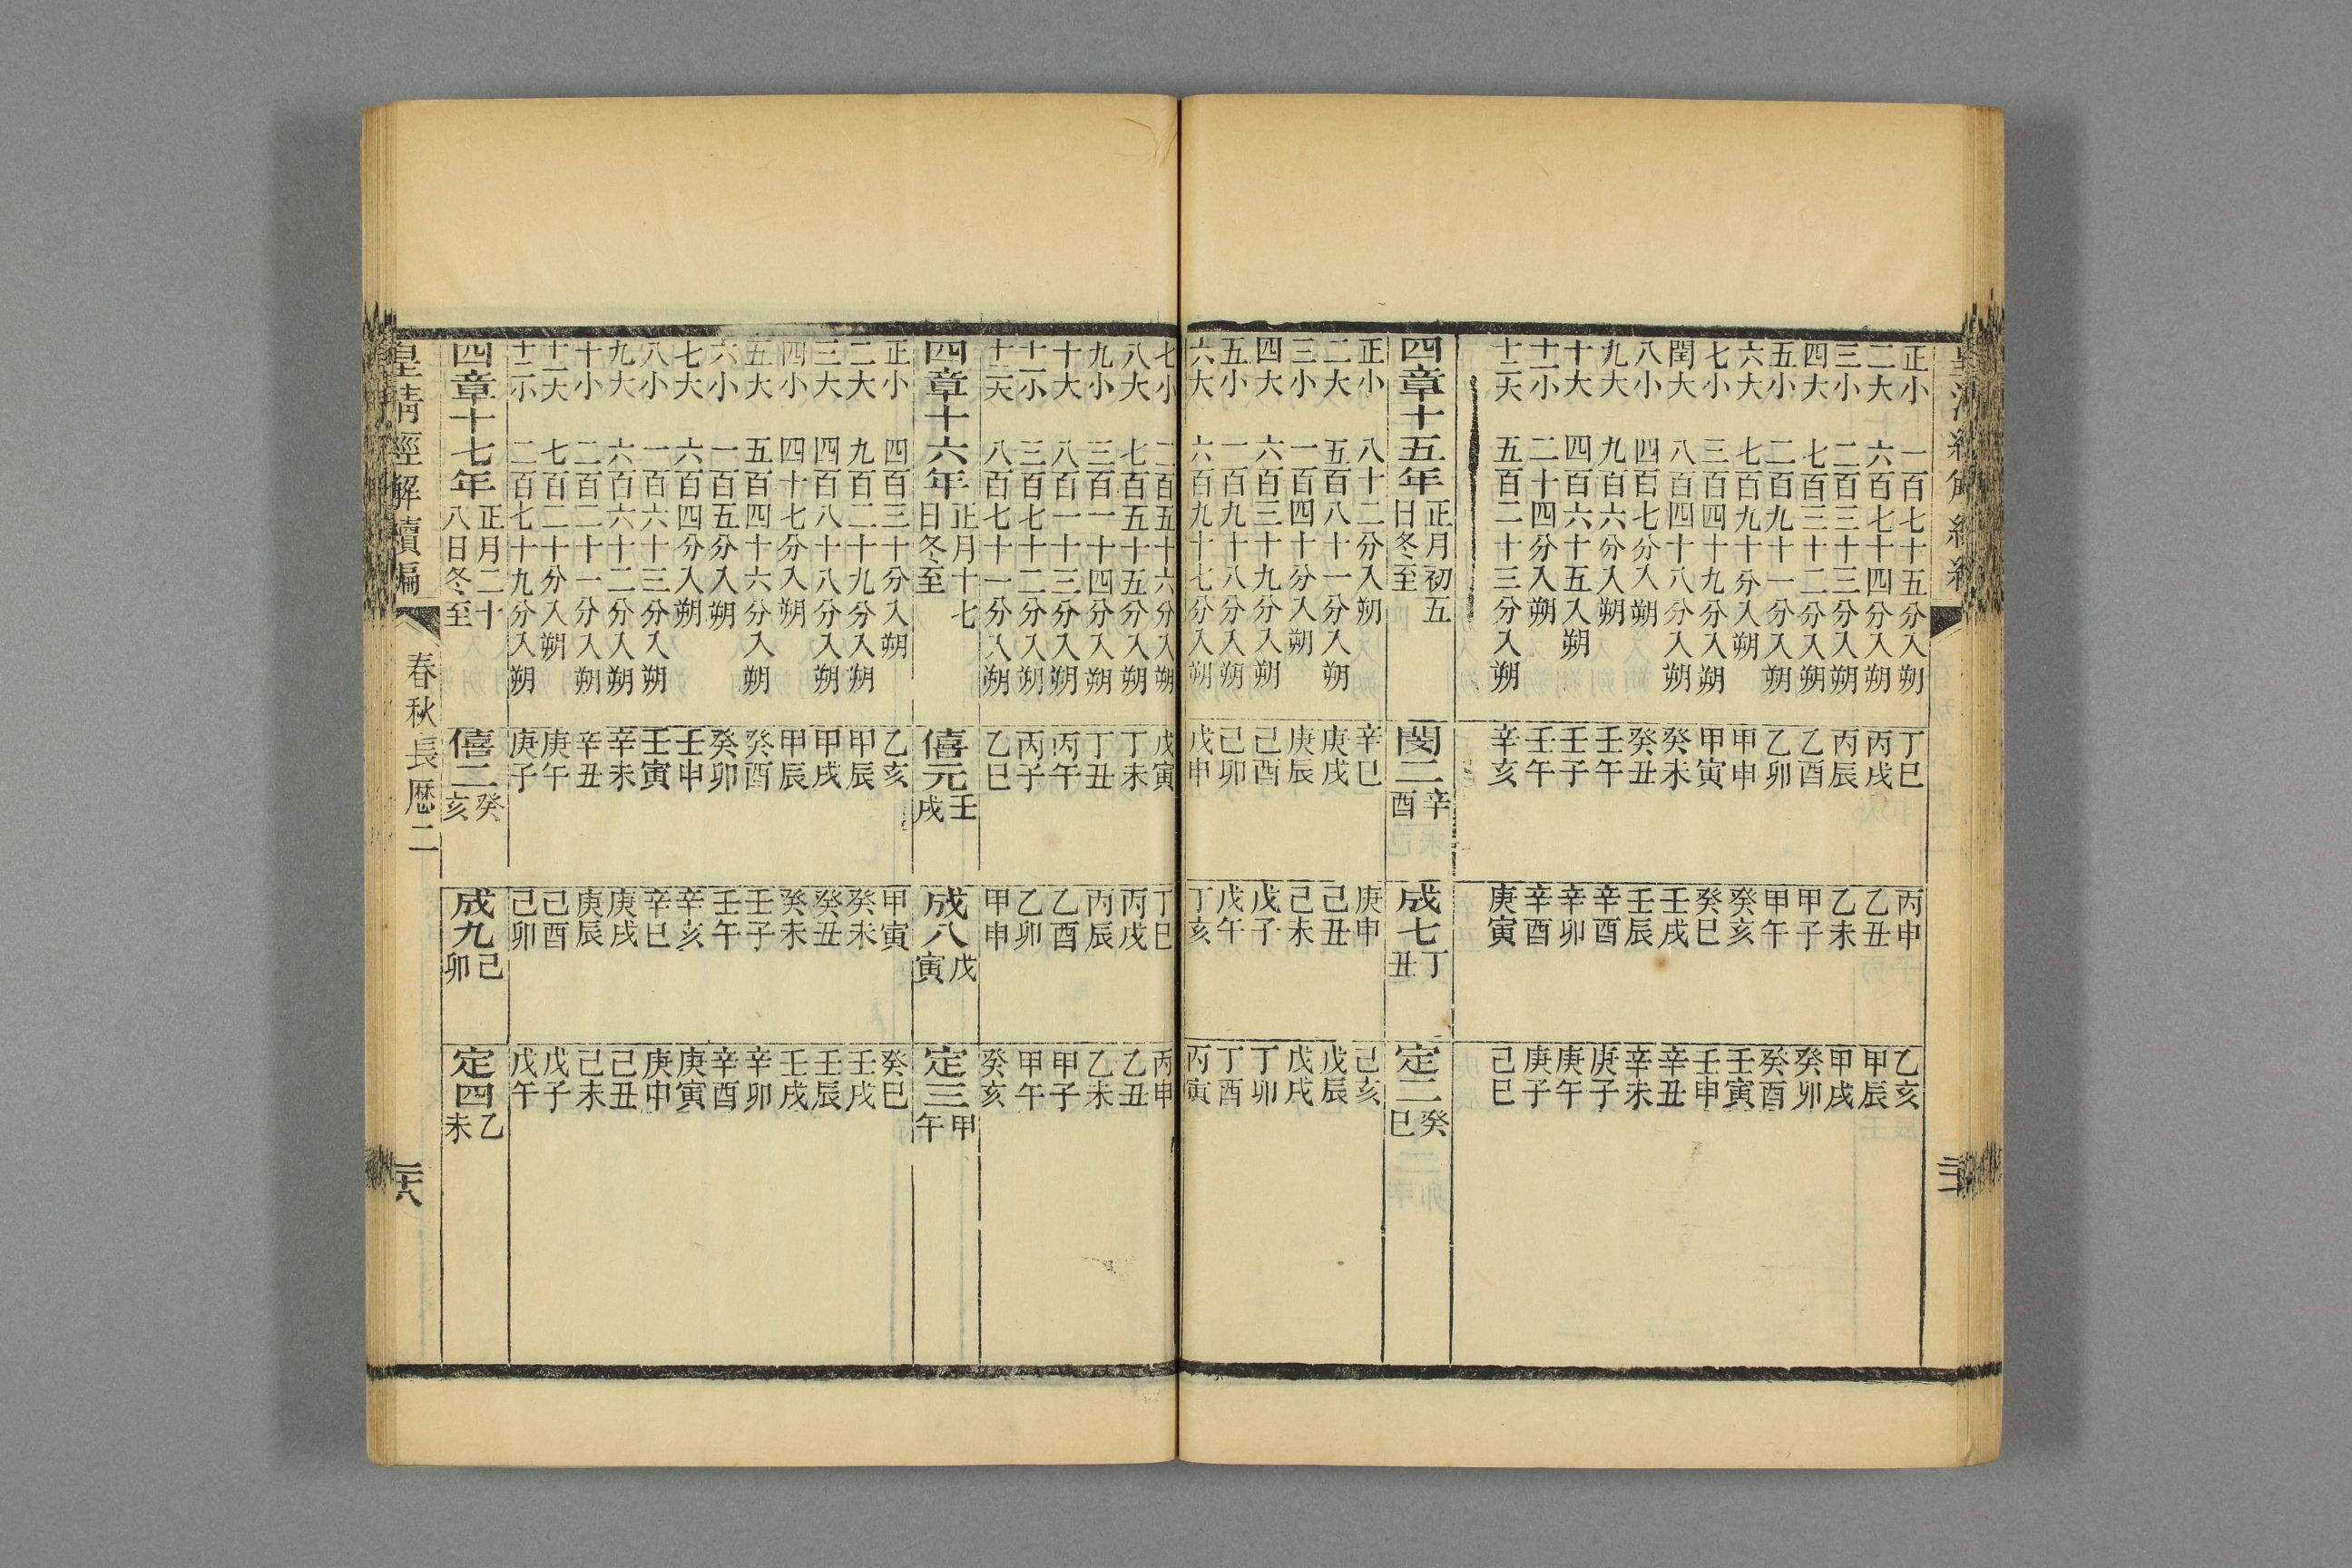 正小 一百七十五分入朔 丁巳 丙申 乙亥
二大 六百七十四分入朔 丙戌 乙丑 甲辰
三小 二百三十三分入朔 丙辰 乙未 甲戌
四大 七百三十二分入朔 乙酉 甲子 癸卯
五小 二百九十一分入朔 乙卯 甲午 癸酉
六大 七百九十分入朔 甲申 癸亥 壬寅
七小 三百四十九分入朔 甲寅 癸巳 壬申
閏大 八百四十八分入朔 癸未 壬戌 辛丑
八小 四百七分入朔 癸丑 壬辰 辛未
九大 九百六分入朔 壬午 辛酉 庚子
十大 四百六十五入朔 壬子 辛卯 庚午
十一小 二十四分入朔 壬午 辛酉 庚子
十二大 五百二十三分入朔 辛亥 庚寅 己巳
四章十五年 正月初五日冬至 閔二辛酉 成七丁丑 定二癸巳
正小 八十二分入朔 辛巳 庚申 己亥
二大 五百八十一分入朔 庚戌 己丑 戊辰
三小 一百四十分入朔 庚辰 己未 戊戌
四大 六百三十九分入朔 己酉 戊子 丁卯
五小 一百九十八分入朔 己卯 戊午 丁酉
六大 六百九十七分入朔 戊申 丁亥 丙寅
七小 二百五十六分入朔 戊寅 丁巳 丙申
八大 七百五十五分入朔 丁未 丙戌 乙丑
九小 三百一十四分入朔 丁丑 丙辰 乙未
十大 八百一十三分入朔 丙午 乙酉 甲子
十一小 三百七十二分入朔 丙子 乙卯 甲午
十二大 八百七十一分入朔 乙巳 甲申 癸亥
四章十六年 正月十七日冬至 僖元壬戌 成八戊寅 定三甲午
正小 四百三十分入朔 乙亥 甲寅 癸巳
二大 九百二十九分入朔 甲辰 癸未 壬戌
三大 四百八十八分入朔 甲戌 癸丑 壬辰
四小 四十七分入朔 甲辰 癸未 壬戌
五大 五百四十六分入朔 癸酉 壬子 辛卯
六小 一百五分入朔 癸卯 壬午 辛酉
七大 六百四分入朔 壬申 辛亥 庚寅
八小 一百六十三分入朔 壬寅 辛巳 庚申
九大 六百六十二分入朔 辛未 庚戌 己丑
十小 二百二十一分入朔 辛丑 庚辰 己未
十一大 七百二十分入朔 庚午 己酉 戊子
十二小 二百七十九分入朔 庚子 己卯 戊午
四章十七年 正月二十八日冬至 僖二癸亥 成九己卯 定四乙未
皇清經解續編 春秋長厯二